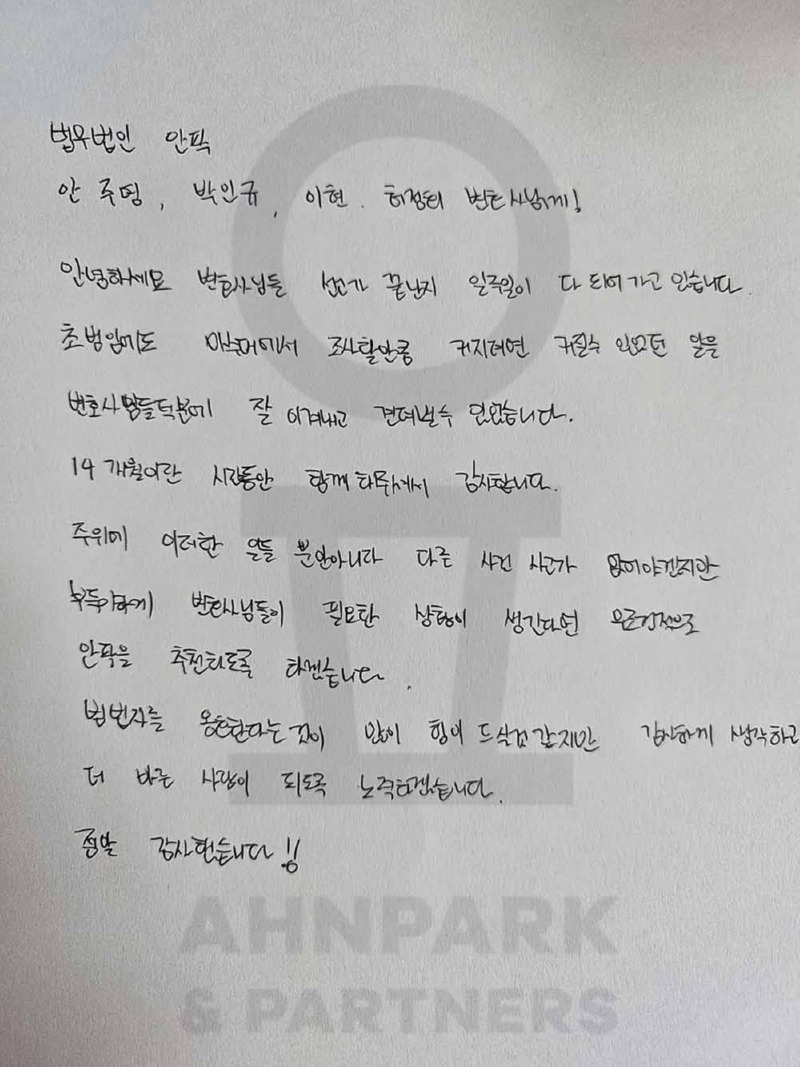 법무법인 안팍
안주영, 박인규, 이현, 허정회 변호사님께!
안녕하세요 변호사님들 선고가 끝난지 일주일이 다 되어가고 있습니다.
초범임에도 마수대에서 조사할만큼 커지려면 커질수 있었던 일을
변호사님들덕분에 잘 이겨내고 견뎌낼수 있었습니다.
14개월이란 시간동안 함께 해주셔서 감사합니다.
주위에 이러한 일들 뿐만아니라 다른 사건 사고가 없어야겠지만
부득이하게 변호사님들이 필요한 상황이 생긴다면 무조건적으로
안팍을 추천하도록 하겠습니다.
범법자를 옹호한다는 것이 많이 힘이 드실것 같지만 감사하게 생각하고
더 바른 사람이 되도록 노력하겠습니다.
정말 감사했습니다!!
AHNPARK
& PARTNERS